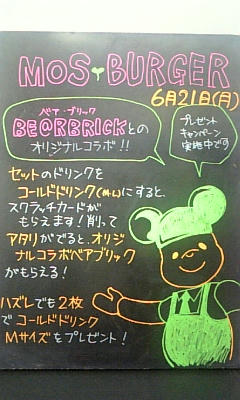 MOS BURGER
6月21日(月)
ベア・ブリック
BE@RBRICKとの
オリジナルコラボ!!
プレゼント
キャンペーン
実施中です
セットのドリンクを
コールドドリンク(めん)にすると、
スクラッチカードが
もらえます!削って
アタリがでると、オリジ
ナルコラボベアブリック
がもらえる!
ハズレでも2枚
でコールドドリンク
Mサイズをプレゼント!
M